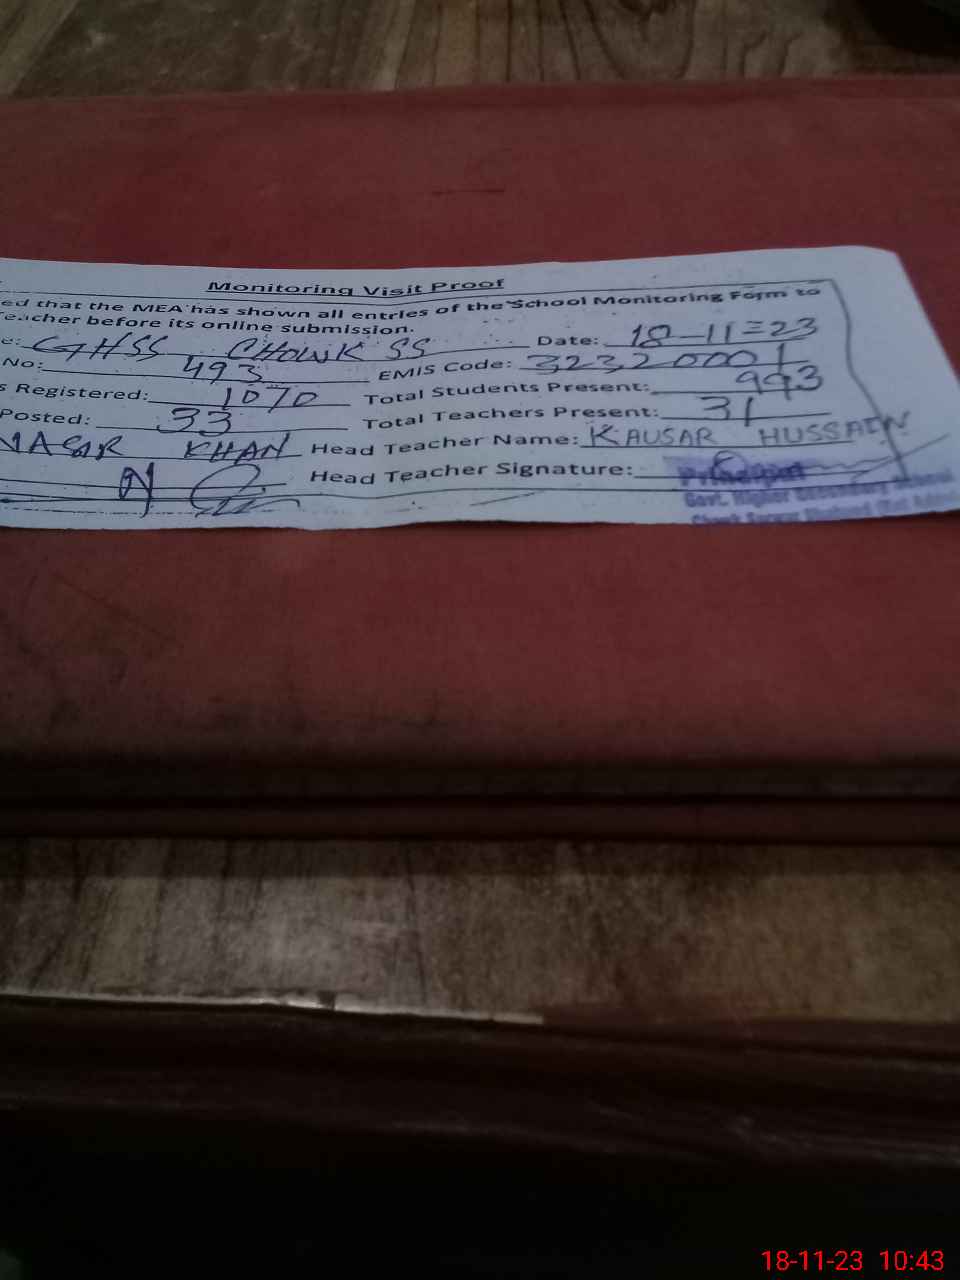 Monitoring Visit Proof
ed that the MEA has shown all entries of the School Monitoring Form to
eacher before its online submission.
e: GHSS CHOWK SS Date: 18-11-23
No: 493 EMIS Code: 32320001
s Registered: 1070 Total Students Present: 993
Posted: 33 Total Teachers Present: 31
NASAR KHAN Head Teacher Name: KAUSAR HUSSAIN
Head Teacher Signature:
Principal
Govt. Higher Secondary School
Chowk Sarwar Shaheed
18-11-23 10:43